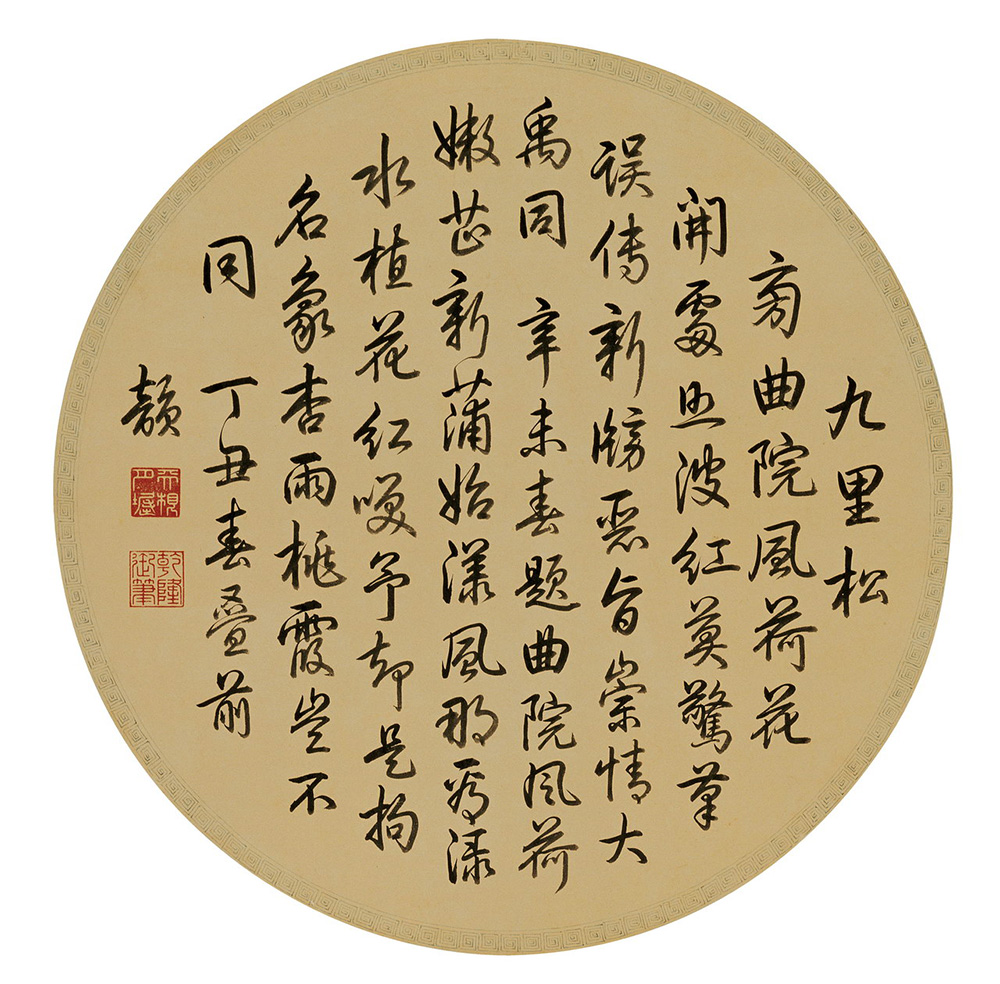 九里松
旁曲院風荷花
開處照波紅莫驚筆
誤傳新牓惡旨崇情大
禹同 辛未春題曲院風荷
嫩芷新蒲始漾風那看淥
水植花紅咲予却是拘
名象杏雨桃霞豈不
同 丁丑春疊前
韻
乾隆御筆